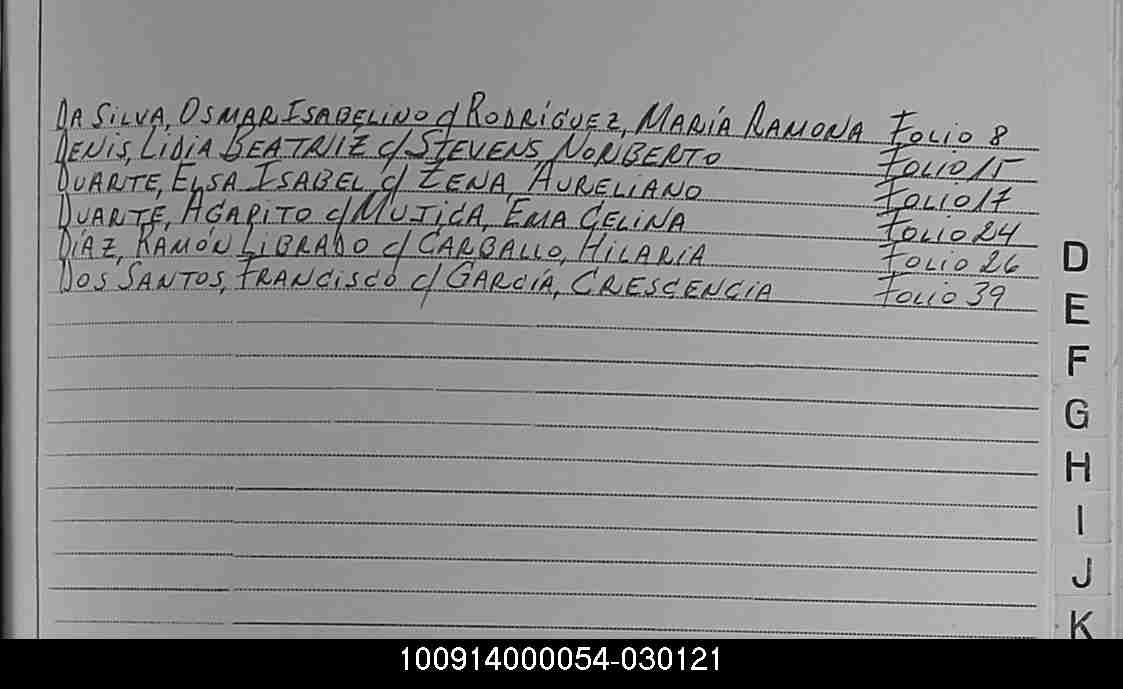 Da Silva, Osmar Isabelino c/ Rodríguez, María Ramona Folio 8
Denis, Lidia Beatriz c/ Stevens, Norberto Folio 15
Duarte, Elsa Isabel c/ Zena, Aureliano Folio 17
Duarte, Agapito c/ Mujica, Ema Celina Folio 24
Díaz, Ramón Librado c/ Carballo, Hilaria Folio 26
Dos Santos, Francisco c/ García, Crescencia Folio 39
D
E
F
G
H
I
J
K
100914000054-030121